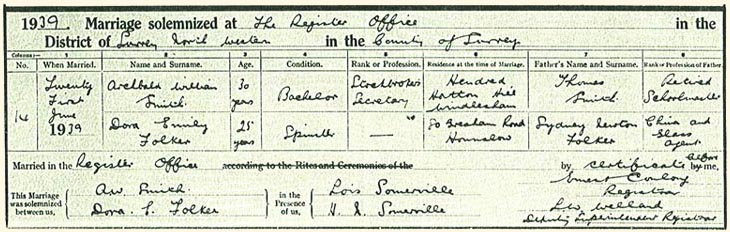 1939. Marriage solemnized at The Register Office in the
District of Surrey North Western in the County of Surrey
Columns:— 1 2 3 4 5 6 7 8
No. When Married. Name and Surname. Age. Condition. Rank or Profession. Residence at the time of Marriage. Father's Name and Surname. Rank or Profession of Father.
14 Twenty First June 1939 Archibald William Smith 30 years Bachelor Stockbrokers Secretary Hendred Hatton Hill Windlesham Thomas Smith Retired Schoolmaster
Dora Emily Folker 25 years Spinster — 80 Road Hounslow Sydney Newton Folker China and Glass Agent
Married in the Register Office according to the Rites and Ceremonies of the by certificate before by me,
This Marriage was solemnized between us, A W Smith. Dora E. Folker in the Presence of us, Lois Somerville Somerville
Ernest
Registrar
Deputy Superintendent Registrar